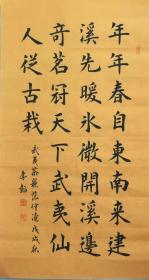 年年春自東南来建
溪先暖氷微開溪邊
奇茗冠天下武夷仙
人從古栽
武夷茶歌范仲淹戊戌秋
李